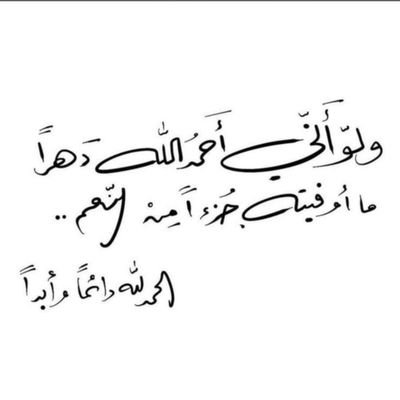 ولوّ أَنّي أَحمدُ الله دَهراً
ما أوفيته جُزءاً مِنْ النّعم ..
الحمدلله دائماً وأبداً